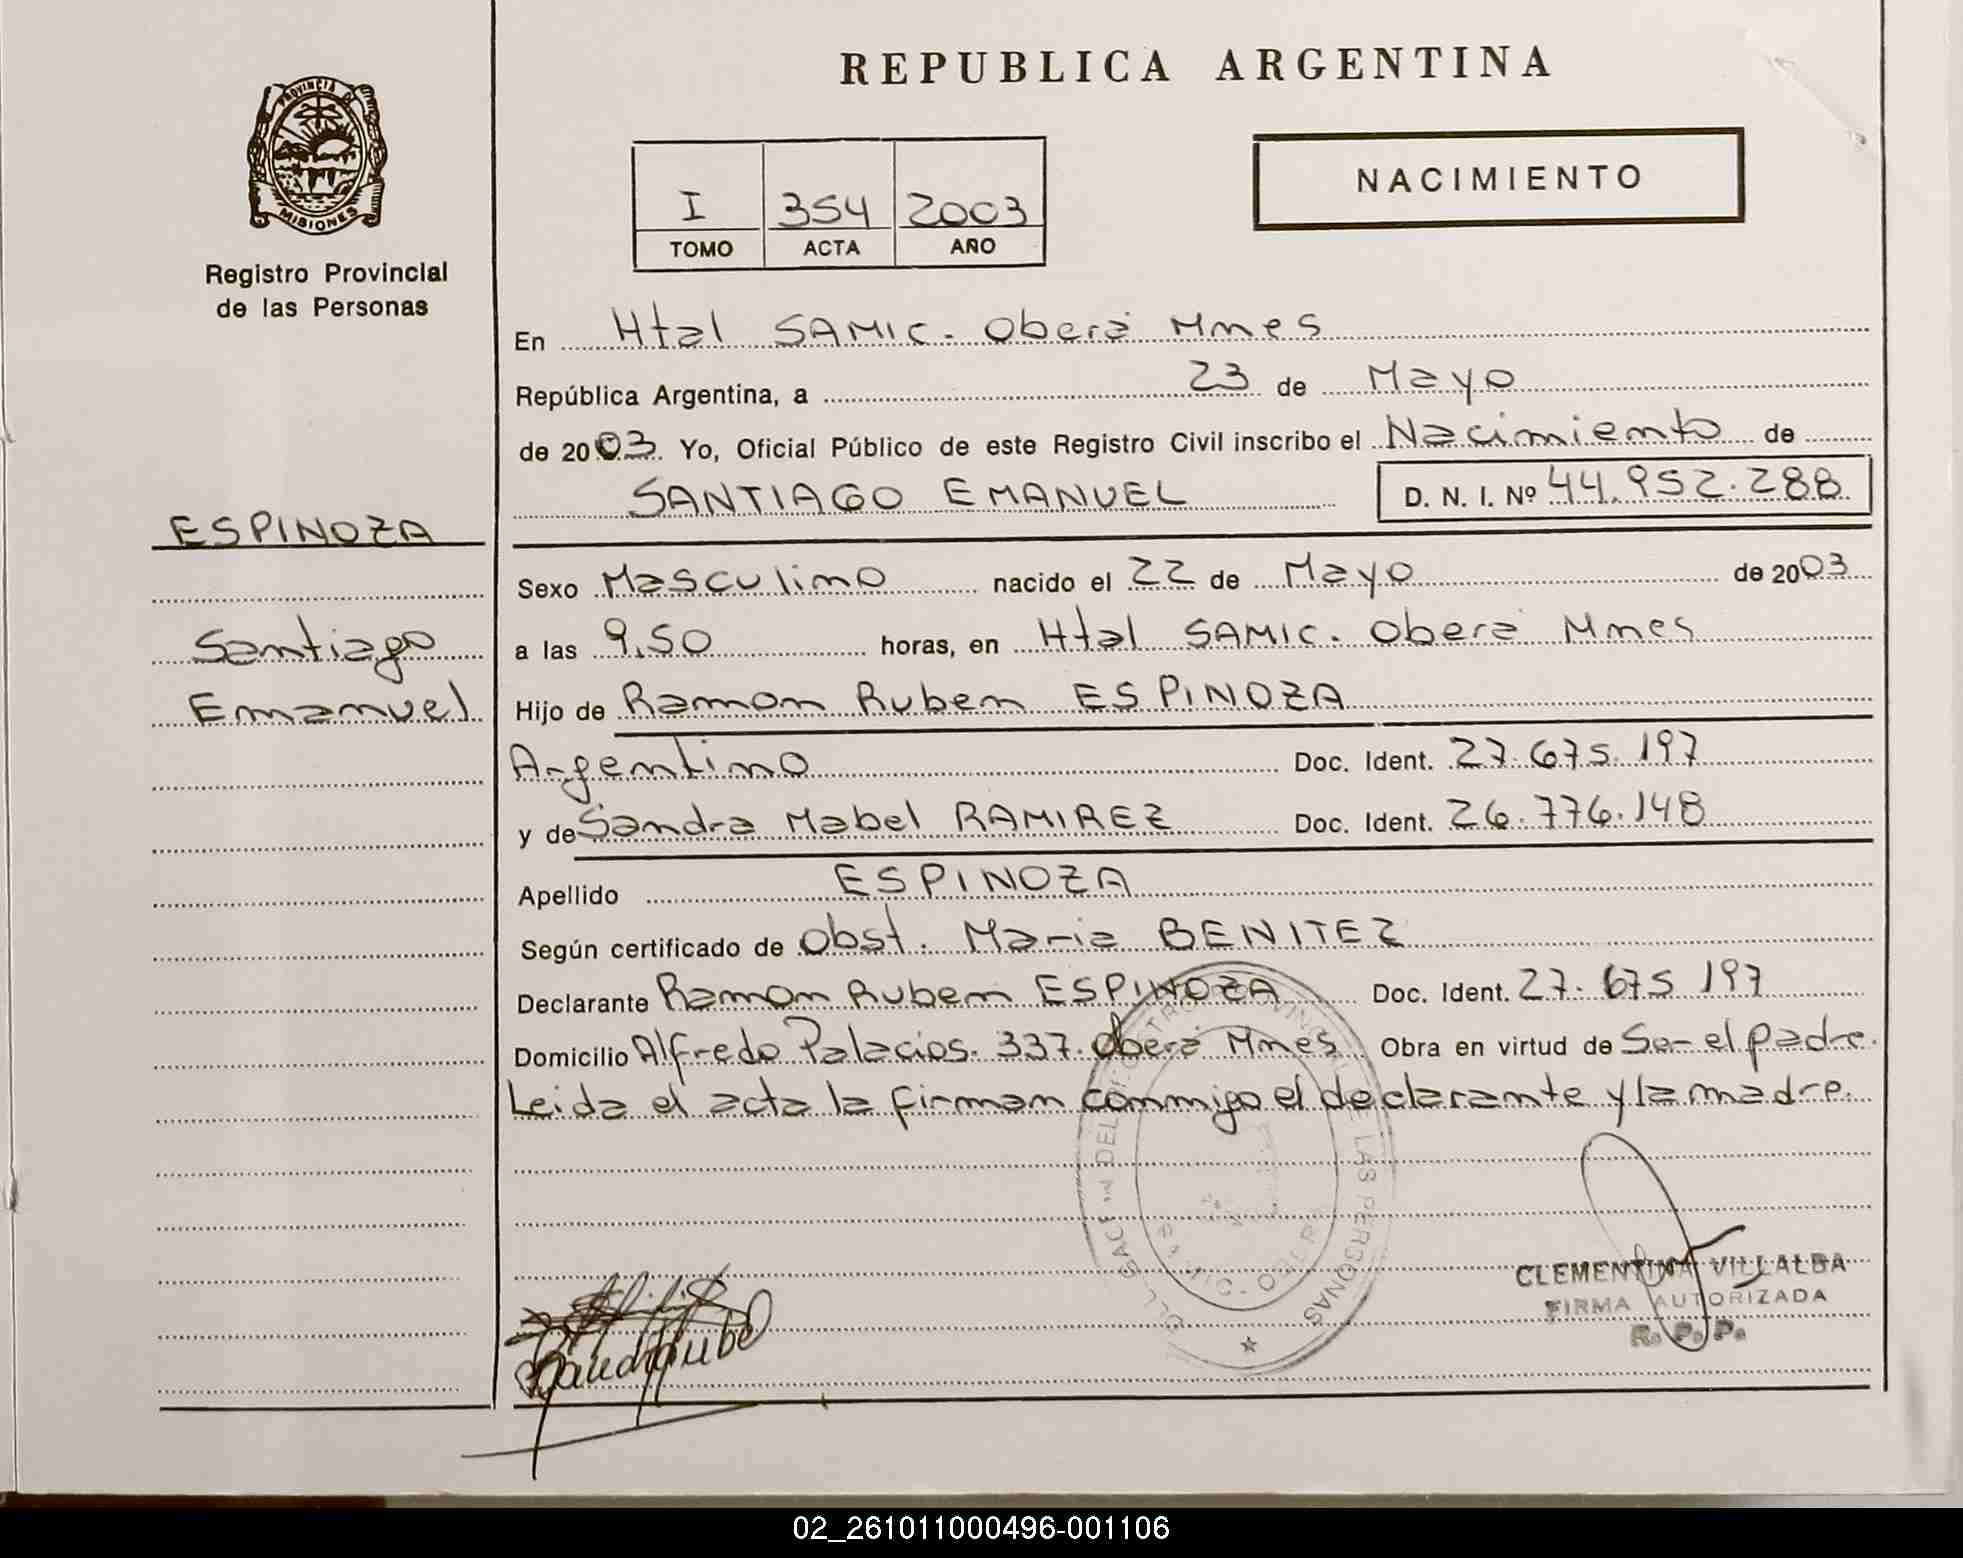 REPUBLICA ARGENTINA
PROVINCIA DE
MISIONES
Registro Provincial
de las Personas
I 354 2003
TOMO ACTA AÑO
NACIMIENTO
En Htal SAMIC. Oberá Mnes
República Argentina, a 23 de Mayo
de 2003. Yo, Oficial Público de este Registro Civil inscribo el Nacimiento de
SANTIAGO EMANUEL D. N. I. Nº 44.952.288
ESPINOZA
Santiago
Emanuel
Sexo Masculino nacido el 22 de Mayo de 2003
a las 9,50 horas, en Htal SAMIC. Oberá Mnes
Hijo de Ramon Ruben ESPINOZA
Argentino Doc. Ident. 27.675.197
y de Sandra Mabel RAMIREZ Doc. Ident. 26.776.148
Apellido ESPINOZA
Según certificado de Obst. Maria BENITEZ
Declarante Ramon Ruben ESPINOZA Doc. Ident. 27.675 197
Domicilio Alfredo Palacios. 337. Oberá Mnes Obra en virtud de Ser el padre.
Leida el acta la firman conmigo el declarante y la madre.
LAS PERSONAS
CLEMENTINA VILLALBA
FIRMA AUTORIZADA
R. P. P.
02_261011000496-001106